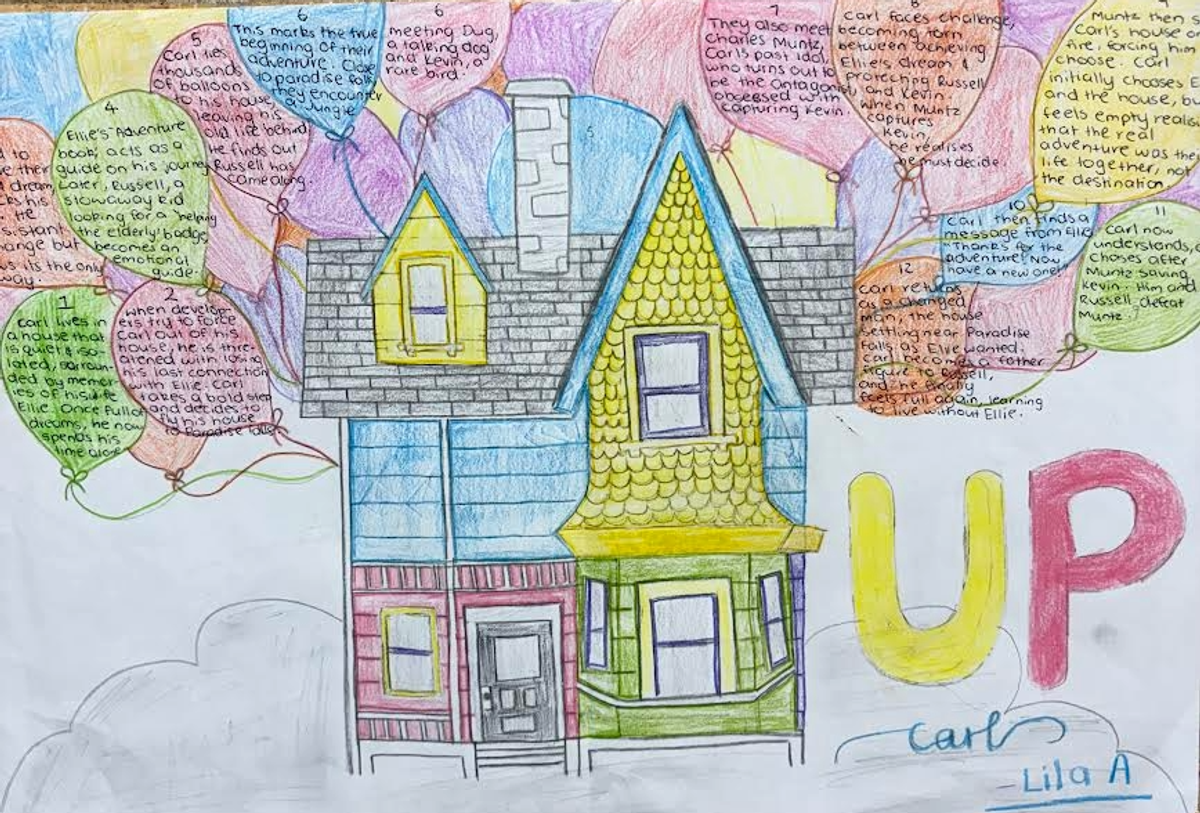 1
Carl lives in
a house that
is quiet & iso-
lated, surroun-
ded by memor-
ies of his wife
Ellie. Once full of
dreams, he now
spends his
time alone
2
when develop-
ers try to force
Carl out of his
house, he is thre-
atened with losing
his last connection
with Ellie. Carl
takes a bold step
and decides to
fly his house
to Paradise falls
d to
ve their
d dream,
cks his
He
sistant
hange but
ws its the only
way.
4
Ellie's Adventure
book, acts as a
guide on his journey
Later, Russell, a
stowaway kid
looking for a "helping
the elderly" badge
becomes an
emotional
guide
5
Carl ties
thousands
of balloons
to his house,
leaving his
old life behind
He finds out
Russell has
came along.
6
This marks the true
beginning of their
adventure. Close
to paradise falls,
they encounter
a Jungle
6
meeting Dug,
a talking dog
and Kevin, a
rare bird.
5
7
They also meet
Charles Muntz,
Carl's past idol,
who turns out to
be the antagonist,
obsessed with
capturing Kevin.
8
Carl faces challenge,
becoming torn
between achieving
Ellie's dream &
protecting Russell
and Kevin.
When Muntz
captures
Kevin,
he realises
he must decide
9
Muntz then s
Carl's house on
fire, forcing him
choose. Carl
initially chooses E
and the house, bu
feels empty realis
that the real
adventure was the
life together, not
the destination
10
Carl then finds a
message from Ellie
"Thanks for the
adventure! Now
have a new one!"
11
Carl now
understands,
choses after
Muntz saving
Kevin. Him and
Russell defeat
Muntz.
12
Carl returns
as a changed
man, the house
settling near Paradise
Falls as Ellie wanted.
Carl becomes a father
figure to Russell,
and he finally
feels full again, learning
to live without Ellie.
UP
Carl
Lila A